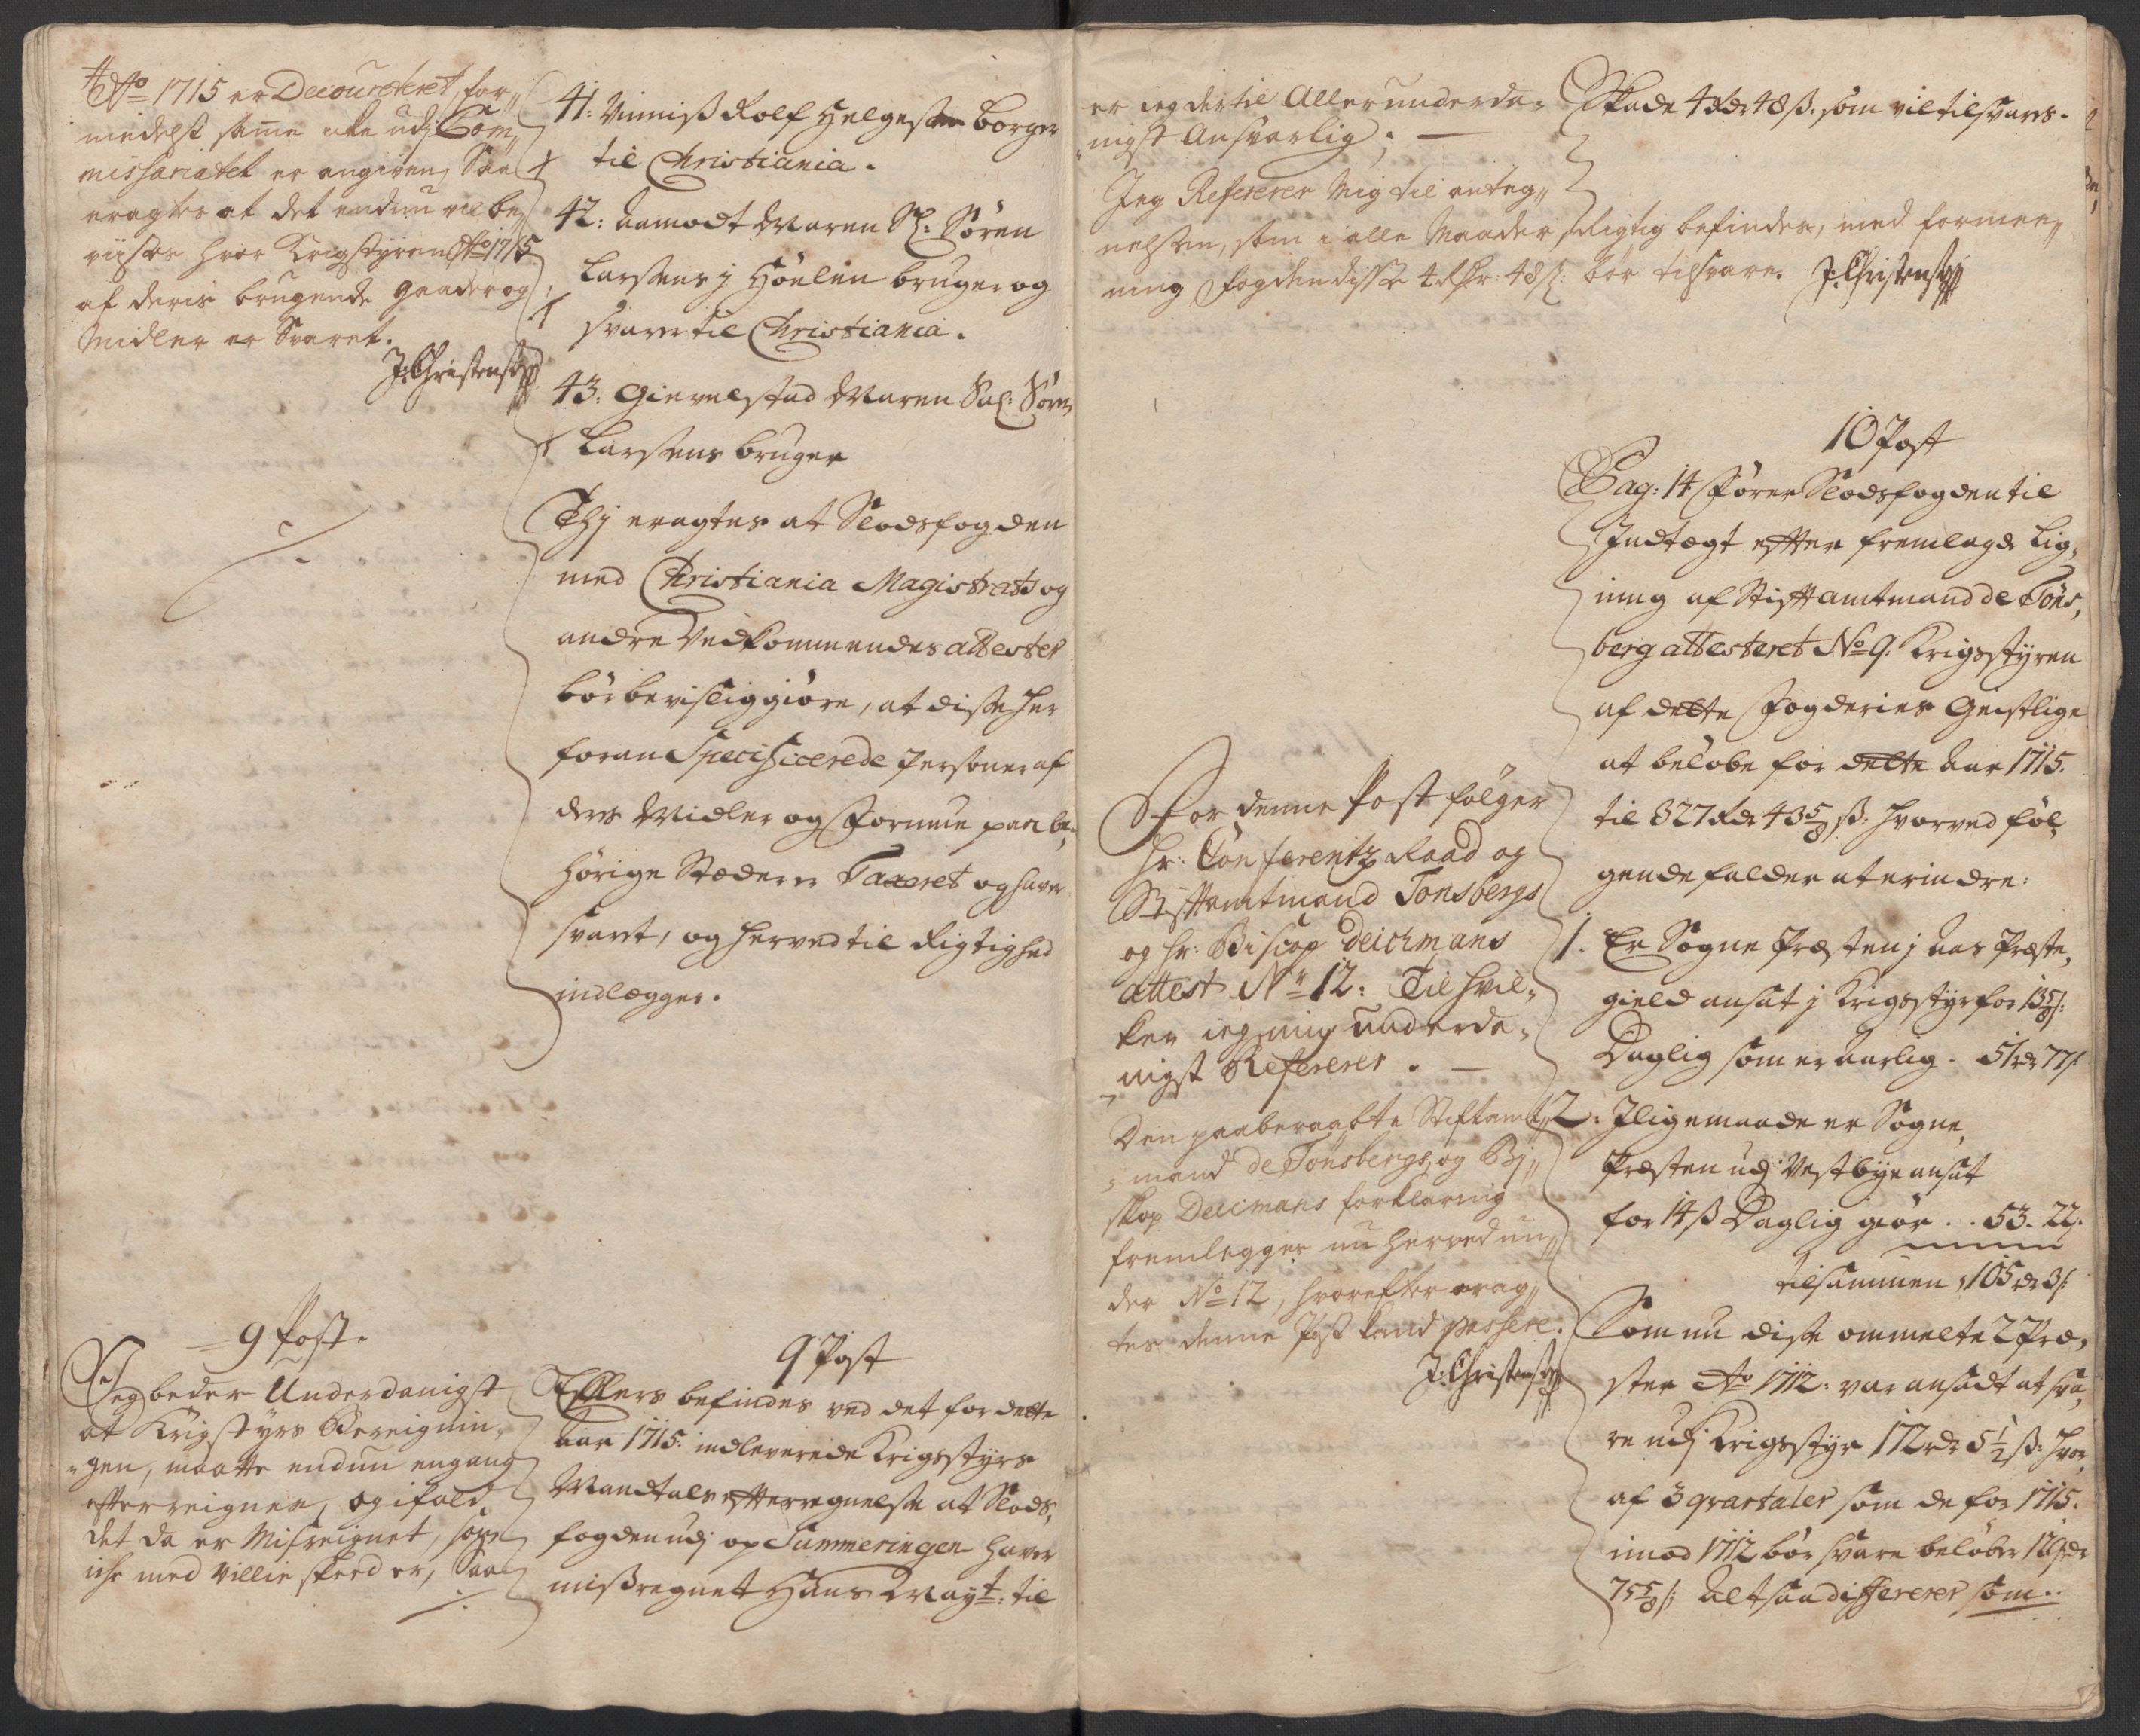 Ao 1715 er Decourteret, for„
medelst samme icke udj Com„
missariatet er angiven, Saa
eragtes at det endnu vil be„
viises hvor Krigstyren Ao 1715
af deris brugende gaarder og
Midler er Svaret.
J: Christens
41: Rolf Helgesen borger
til Christiania.
42: Aamodt Maren Sl: Sören
Larsens j Höelen bruger og
svarer til Christiania.
43: Gievelstad Maren Sal: Sören
Larsens bruger
Thj eragtes at Slodsfogden
med Christiania Magistrats og
andre Vedkommendes attester
bör bevislig giöre, at disse her
foran Specificerede Personer af
deres Midler og Formue paa be„
hörige Stæder er Taxeret og haver
svaret, og herved til Rigtighed
indlægger.
9 Post.
Jeg beder Underdanigst
at Krigstyrs Bereignin„
„gen, maatte endnu engang
efterreignes, og ifald
det da er Misreignet, som
iche med Villie skeed er, Saa
./.
9 Post
Ellers befindes ved det for dette
Aar 1715. indleverede Krigsstyrs
Mandtals efterregnelse at Slods„
fogden udj op Summeringen haver
missregnet Hans Mayt: til
er ieg dertil Allerunderda„
„nigst Ansvarlig; —
Jeg Refererer Mig til anteg„
nelsen, som i alle Maader Rigtig befindes, med formee„
ning Fogden disse 4 Rdr: 48 s: bör tilsvare. J: Christens
For denne Post fölger
Hr: Conferentz Raad og
Stiftamtmand Tonsbergs
og Hr: Biscop Deichmans
attest Nr 12: Til hvil„
ken ieg mig underda„
„nigst Refererer. —
Den paaberaabte Stiftamt„
„mand de Tonsbergs og Bj„
skop Deicmans forklaring
fremlegges nu herved un„
der No 12, hvorefter erag„
tes denne Post kand passere.
J: Christens
Skade 4 Rdr 48 ß: som vil tilsvares.
10 Post
Pag: 14 Förer Slodsfogden til
Indtægt efter fremlagde Lig„
ning af Stiftamtmand de Töns„
berg attesteret No 9. Krigsstyren
af dette Fogderies Geistlige
at belöbe for dette Aar 1715.
til 327 Rdr 43 5/8 ß: hvorved föl„
gende falder at erindre:
1. Er Sogne Præsten j Aas Præste„
gield ansat j Krigsstyr for 13 5/8 s:
Daglig som er aarlig. 51 rdr 77 s:
2: Jligemaade er Sogne„
Præsten udj Vestbye ansat
for 14 ß Daglig giör . . 53. 22.
tilsammen 105 rdr 3 s:
Som nu disse ommelte 2 Præ„
ster Ao 1712: var ansadt at sva„
re udj Krigsstyr 172 rdr 5 1/2 ß: hvor„
af 3 qvartaler som de for 1715.
imod 1712 bör svare belöber 129 rdr
75 5/8 s: Altsaa differerer som..